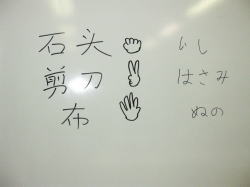 石头 いし
剪刀 はさみ
布 ぬの